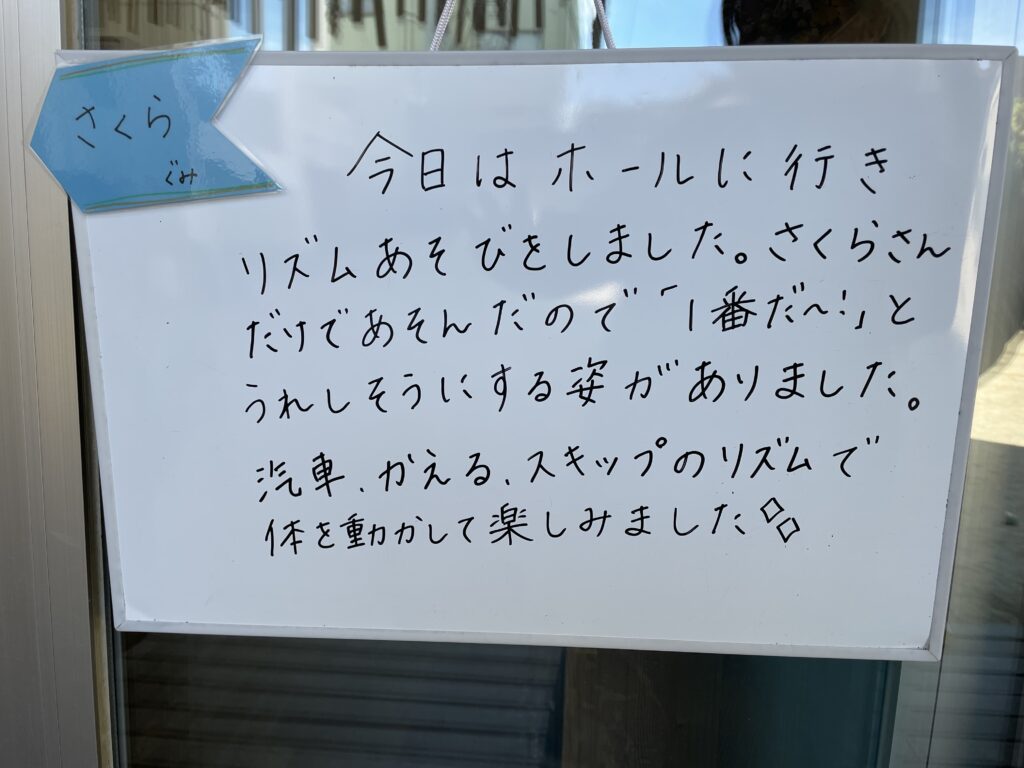 さくら
ぐみ
今日は ホールに行き
リズムあそびをしました。さくらさん
だけであそんだので「1番だ〜!」と
うれしそうにする姿がありました。
汽車、かえる、スキップのリズムで
体を動かして楽しみました